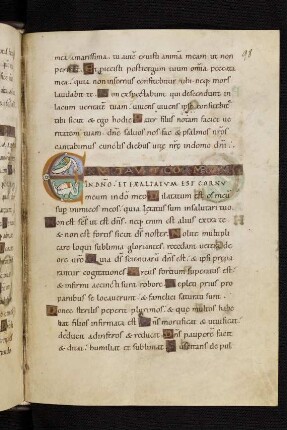 98
mea amarissima. tu autē eruisti animā meam ut non
periret. Et proiecisti post tergum tuum omnia peccata
mea. quia non infernus confitebitur tibi neq; mors
laudabit te. Non exspectabunt qui descendunt in
lacum ueritatem tuam. uiuens uiuens ipse confitebit̄
tibi sicut & ego hodie. Pater filiis notam faciet ue
ritatem tuam. dnē saluos nos fac & psalmos nr̄os
cantabimus cunctis diebus uitę nr̄ę in domo dnī.
IN DNŌ. ET EXALTATUM EST CORNU
meum in dō meo. Dilatatum est os meū
sup inimicos meos. quia lętata sum in salutari tuo.
Non est scs̄ ut est dn̄s. neq; enim est alius extra te
& non est fortis sicut ds̄ noster. Nolite multipli
care loqui sublimia gloriantes. recedant uetera de
ore ur̄o. Quia ds̄ scientiarū dn̄s est. & ipsi prępa
rantur cogitationes. Arcus fortium superatus est
& infirmi accincti sunt robore. Repleti prius pro
panibus se locauerunt. & famelici saturati sunt.
Donec sterilis peperit plurimos. & quę multos habe
bat filios infirmata est. Dn̄s mortificat & uiuificat.
deducit ad inferos & reducit. Dn̄s pauperē facit
& ditat. humiliat et subleuat. Suscitans de pul